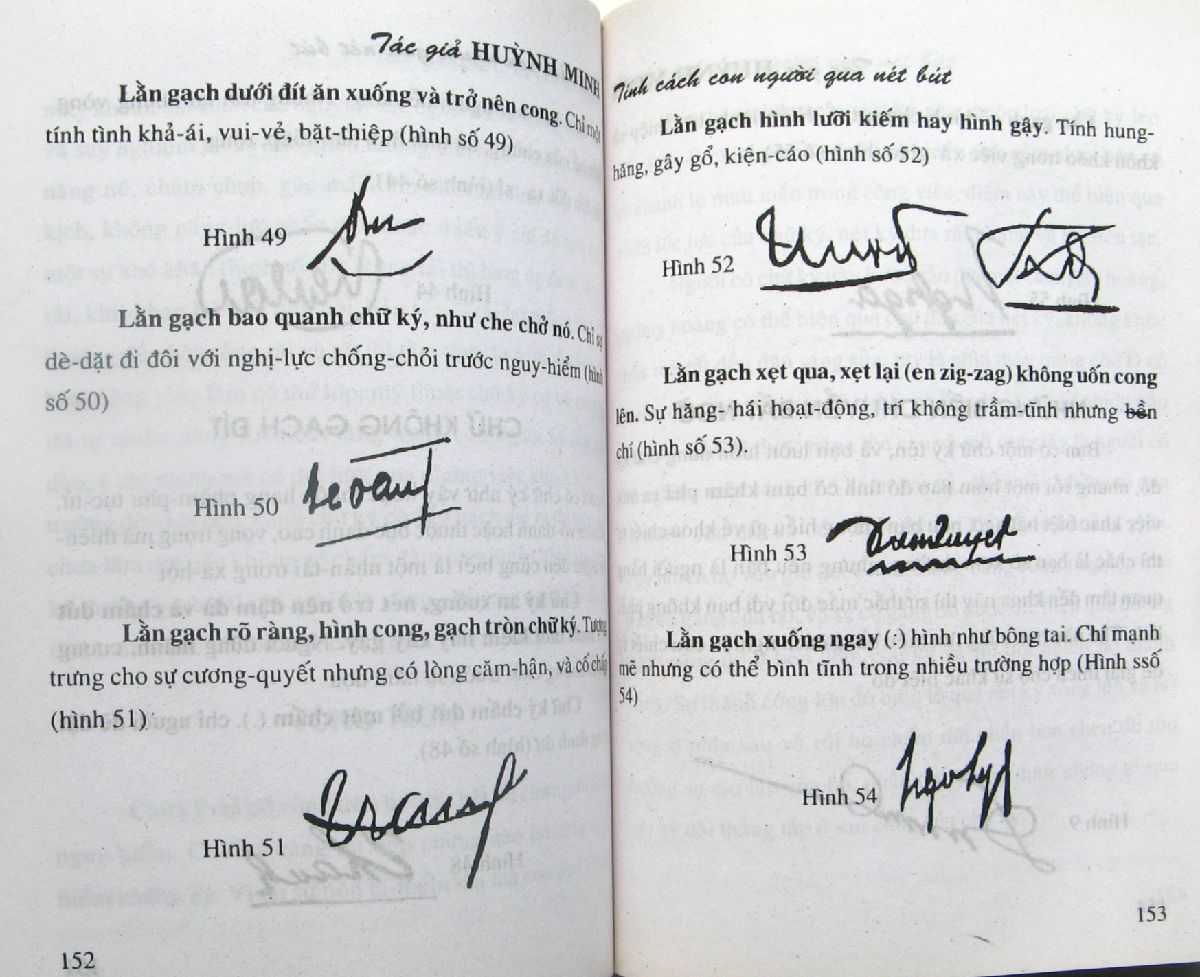 Tác giả HUỲNH MINH
Lằn gạch dưới đít ăn xuống và trở nên cong. Chỉ
tính tình khả-ái, vui-vẻ, bặt-thiệp (hình số 49)
Hình 49
Lằn gạch bao quanh chữ ký, như che chở nó. Chỉ sự
dè-dặt đi đôi với nghị-lực chống-chỏi trước nguy-hiểm (hình
số 50)
Hình 50
Lằn gạch rõ ràng, hình cong, gạch tròn chữ ký. Tượng
trưng cho sự cương-quyết nhưng có lòng căm-hận, và cố chấp
(hình 51)
Hình 51
152
Tính cách con người qua nét bút
Lằn gạch hình lưỡi kiếm hay hình gậy. Tính hung-
hăng, gây gổ, kiện-cáo (hình số 52)
Hình 52
Lằn gạch xẹt qua, xẹt lại (en zig-zag) không uốn cong
lên. Sự hăng- hái hoạt-động, trí không trầm-tĩnh nhưng bền
chí (hình số 53).
Hình 53
Lằn gạch xuống ngay (:) hình như bông tai. Chỉ mạnh
mẽ nhưng có thể bình tĩnh trong nhiều trường hợp (Hình ssố
54)
Hình 54
153